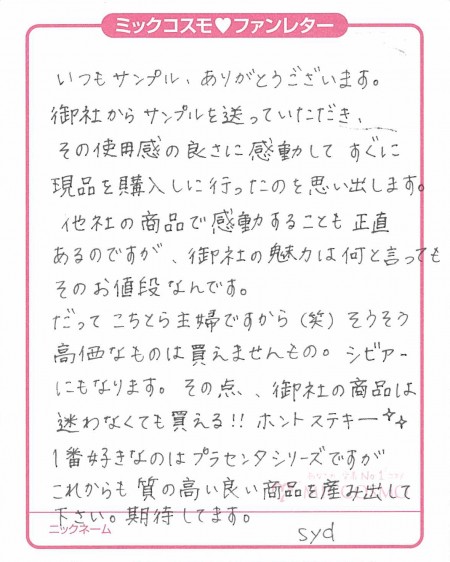 ミックコスモ♥ファンレター
いつもサンプル、ありがとうございます。
御社からサンプルを送っていただき、
その使用感の良さに感動してすぐに
現品を購入しに行ったのを思い出します。
他社の商品で感動することも正直
あるのですが、御社の魅力は何と言っても
そのお値段なんです。
だってこちとら主婦ですから(笑)そうそう
高価なものは買えませんもの。シビアー
にもなります。その点、、御社の商品は
迷わなくても買える!!ホントステキー✧✧
1番好きなのはプラセンタシリーズですが
これからも質の高い良い商品を産み出して
下さい。期待してます。
ニックネーム
syd